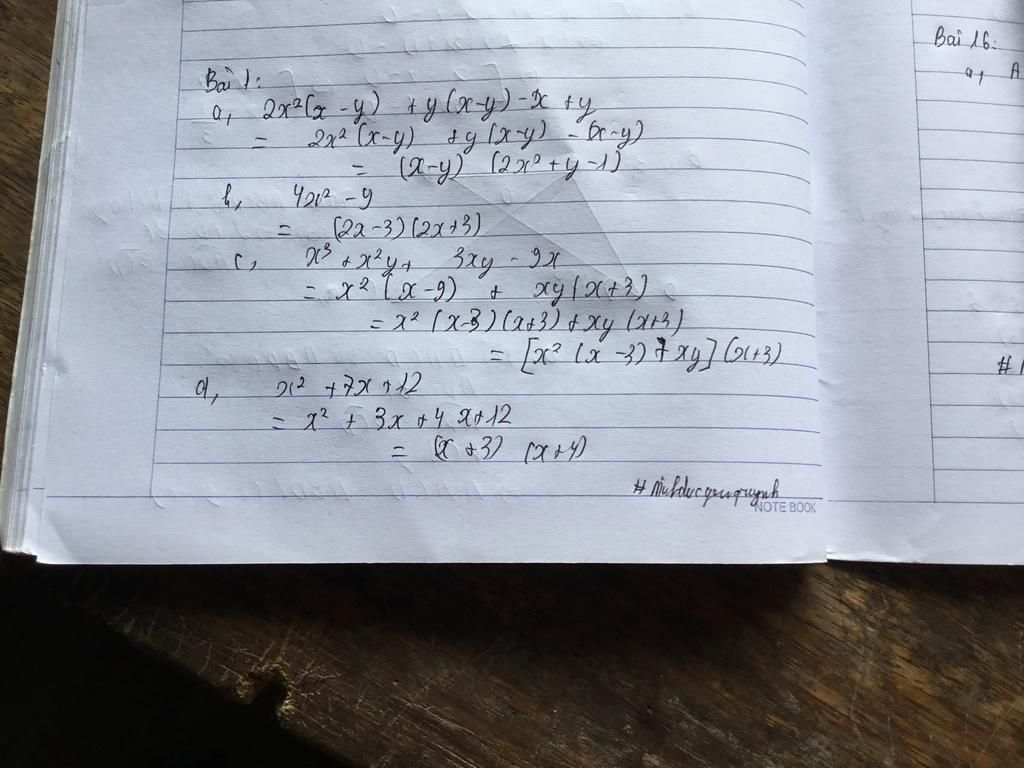 Bài 1:
a, 2x²(x-y) + y(x-y) - x + y
= 2x²(x-y) + y(x-y) - (x-y)
= (x-y) (2x² + y - 1)
b, 4x² - 9
= (2x-3)(2x+3)
c, x³ + x²y + 3xy - 9x
= x² (x-9) + xy(x+3)
= x² (x-3)(x+3) + xy (x+3)
= [x² (x-3) + xy] (x+3)
d, x² + 7x + 12
= x² + 3x + 4x + 12
= (x+3) (x+4)
NOTE BOOK
Bài 16:
a, A
#